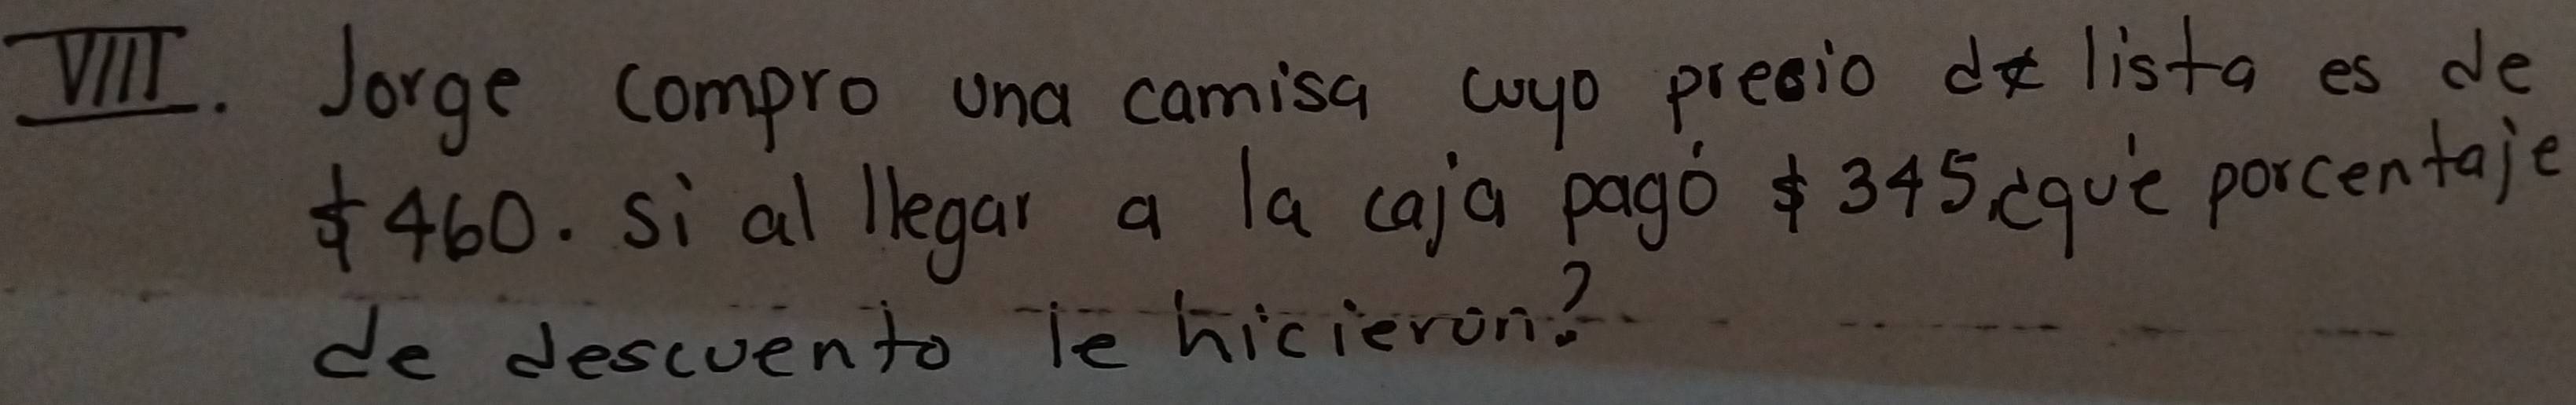 VIII. Jorge compro una camisa cuyo precio de lista es de
$460. si al llegar a la caja pagó $345,¿qué porcentaje
de descuento le hicieron?